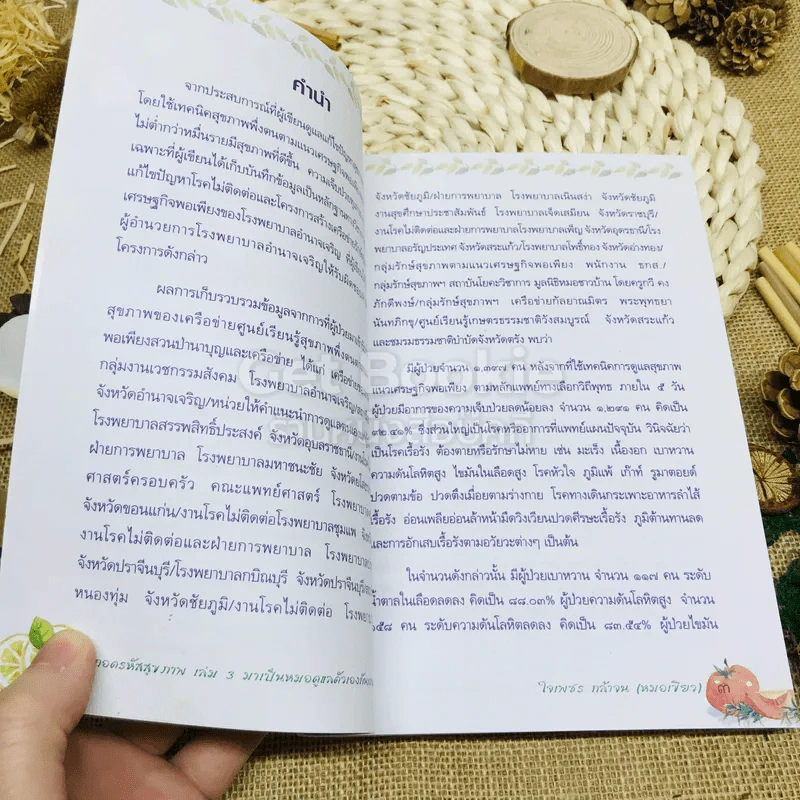 คำนำ
จากประสบการณ์ที่ผู้เขียนดูแลแก้ไขปัญหา
โดยใช้เทคนิคสุขภาพพึ่งตนตามแนวเศรษฐกิจพอเพียง
ไม่ต่ำกว่าหมื่นรายมีสุขภาพที่ดีขึ้น ความเจ็บป่วย
เฉพาะที่ผู้เขียนได้เก็บบันทึกข้อมูลเป็นหลักฐาน
แก้ไขปัญหาโรคไม่ติดต่อและโครงการสร้างเครือข่าย
เศรษฐกิจพอเพียงของโรงพยาบาลอำนาจเจริญ
ผู้อำนวยการโรงพยาบาลอำนาจเจริญให้รับผิดชอบ
โครงการดังกล่าว
ผลการเก็บรวบรวมข้อมูลจากการที่ผู้ป่วยมา
สุขภาพของเครือข่ายศูนย์เรียนรู้สุขภาพพึ่งตน
พอเพียงสวนป่านาบุญและเครือข่าย ได้แก่ เครือข่าย
กลุ่มงานเวชกรรมสังคม โรงพยาบาลอำนาจเจริญ
จังหวัดอำนาจเจริญ/หน่วยให้คำแนะนำการดูแล
โรงพยาบาลสรรพสิทธิ์ประสงค์ จังหวัดอุบลราชธานี
ฝ่ายการพยาบาล โรงพยาบาลมหาชนะชัย
ศาสตร์ครอบครัว คณะแพทย์ศาสตร์ โรงพยาบาล
จังหวัดขอนแก่น/งานโรคไม่ติดต่อโรงพยาบาลชุมแพ
งานโรคไม่ติดต่อและฝ่ายการพยาบาล
จังหวัดปราจีนบุรี/โรงพยาบาลกบินบุรี จังหวัดปราจีนบุรี
หนองทุ่ม จังหวัดชัยภูมิ/งานโรคไม่ติดต่อ
ถอดรหัสสุขภาพ เล่ม 3 มาเป็นหมอดูแลตัวเองกัน
จังหวัดชัยภูมิ/ฝ่ายการพยาบาล โรงพยาบาลเนินสง่า จังหวัดชัยภูมิ
งานสุขศึกษาประชาสัมพันธ์ โรงพยาบาลเจ็ดเสมียน จังหวัดราชบุรี/
งานโรคไม่ติดต่อและฝ่ายการพยาบาลโรงพยาบาลเพ็ญ จังหวัดอุดรธานี/โรง
พยาบาลอรัญประเทศ จังหวัดสระแก้ว/โรงพยาบาลโพธิ์ทอง จังหวัดอ่างทอง/
กลุ่มรักษ์สุขภาพตามแนวเศรษฐกิจพอเพียง พนักงาน ธกส./
กลุ่มรักษ์สุขภาพฯ สถาบันโยคะวิชาการ มูลนิธิหมอชาวบ้าน โดยครูกวี คง
ภักดีพงษ์/กลุ่มรักษ์สุขภาพฯ เครือข่ายกัลยาณมิตร พระพุทธยา
นันทภิกขุ/ศูนย์เรียนรู้เกษตรธรรมชาติวังสมบูรณ์ จังหวัดสระแก้ว
และชมรมธรรมชาติบำบัดจังหวัดตรัง พบว่า
มีผู้ป่วยจำนวน ๑,๓๙๗ คน หลังจากที่ใช้เทคนิคการดูแลสุขภาพ
แนวเศรษฐกิจพอเพียง ตามหลักแพทย์ทางเลือกวิถีพุทธ ภายใน ๕ วัน
ผู้ป่วยมีอาการของความเจ็บป่วยลดน้อยลง จำนวน ๑,๒๙๑ คน คิดเป็น
๒.๔๑% ซึ่งส่วนใหญ่เป็นโรคหรืออาการที่แพทย์แผนปัจจุบัน วินิจฉัยว่า
เป็นโรคเรื้อรัง ต้องตายหรือรักษาไม่หาย เช่น มะเร็ง เนื้องอก เบาหวาน
ความดันโลหิตสูง ไขมันในเลือดสูง โรคหัวใจ ภูมิแพ้ เก๊าท์ รูมาตอยด์
ปวดตามข้อ ปวดตึงเมื่อยตามร่างกาย โรคทางเดินกระเพาะอาหารลำไส้
เรื้อรัง อ่อนเพลียอ่อนล้าหน้ามืดวิงเวียนปวดศีรษะเรื้อรัง ภูมิต้านทานลด
และการอักเสบเรื้อรังตามอวัยวะต่างๆ เป็นต้น
ในจำนวนดังกล่าวนั้น มีผู้ป่วยเบาหวาน จำนวน ๑๑๗ คน ระดับ
น้ำตาลในเลือดลดลง คิดเป็น ๘๘.๐๓% ผู้ป่วยความดันโลหิตสูง จำนวน
๑๕๘ คน ระดับความดันโลหิตลดลง คิดเป็น ๘๓.๕๔% ผู้ป่วยไขมัน
ใจเพชร กล้าจน (หมอเขียว)
๓
Get Bookie